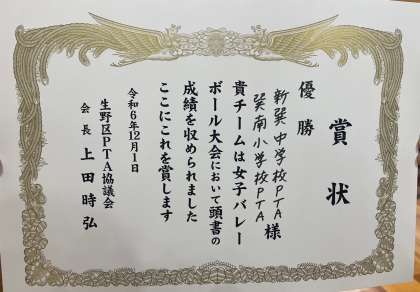 賞状
優勝
新巽中学校PTA
巽南小学校PTA
様
貴チームは女子バレー
ボール大会において頭書の
成績を収められました
ここにこれを賞します
令和6年12月1日
生野区PTA協議会
会長 上田時弘